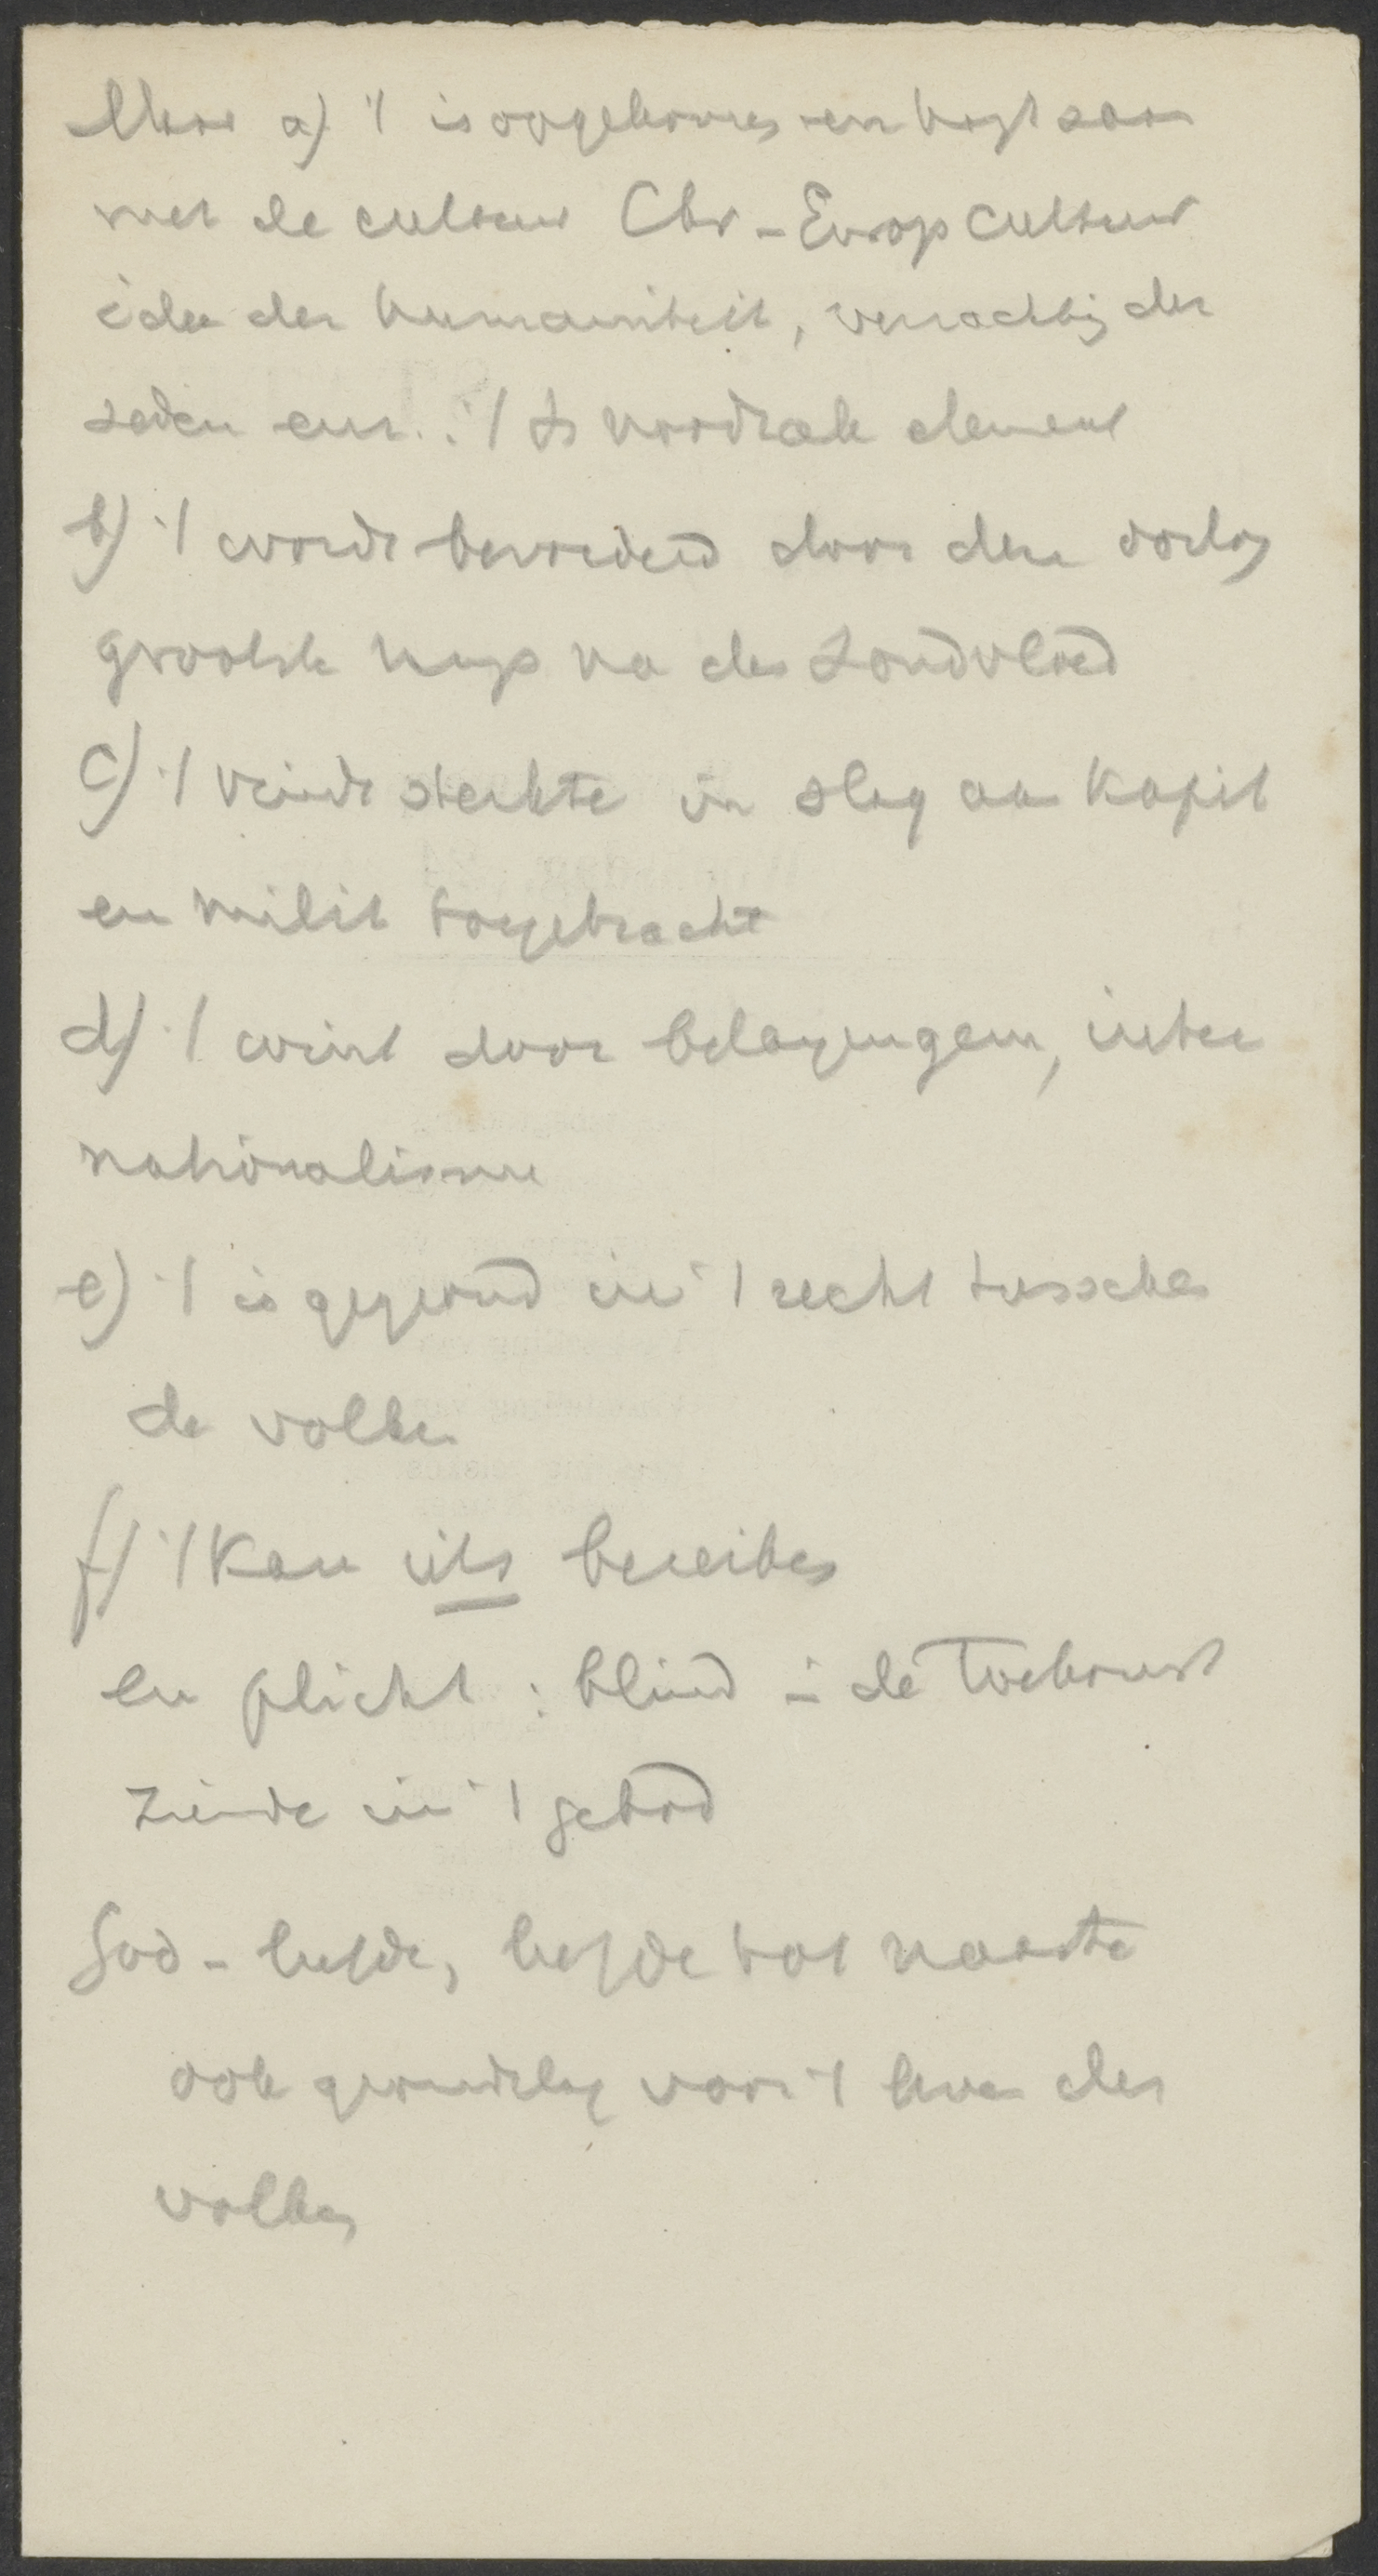 Maar a) 't is opgekomen en hangt saam
met de cultuur Chr-Europ cultuur
idee der humaniteit, verzachting der
zeden enz. : 't is noodzak element
b) 't wordt bevorderd door den oorlog
grootste ramp na den zondvloed
c) 't vindt sterkte in slag aan kapit
en milit toegebracht
d) 't wint door belangengem, inter
nationalisme
e) 't is gegrond in 't recht tusschen
de volken
f) 't kan iets bereiken
en plicht : blind in de toekomst
ziende in 't gebod
God - liefde, liefde tot naaste
ook grondslag voor 't leven der
volken